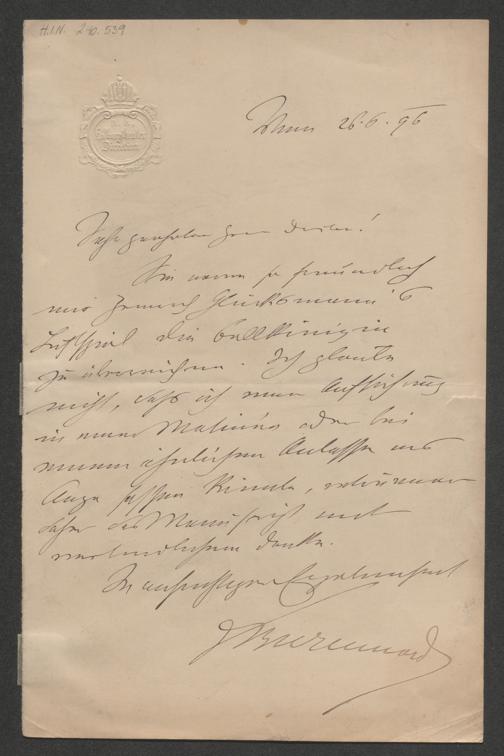 H.I.N. 240.539
K. K.
Hofburgtheater
Direction
Wien 26.6.96
Sehr geehrter Herr Doctor!
Sie waren so freundlich
mir Heinrich Glücksmann's
Lustspiel die Ballkönigin
zu überreichen. Ich glaube
nicht, daß ich eine Aufführung
in einer Matinée oder bei
einem ähnlichen Anlasse ins
Auge fassen könnte, retournire
daher das Manuscript mit
verbindlichem Danke.
In aufrichtiger Ergebenheit